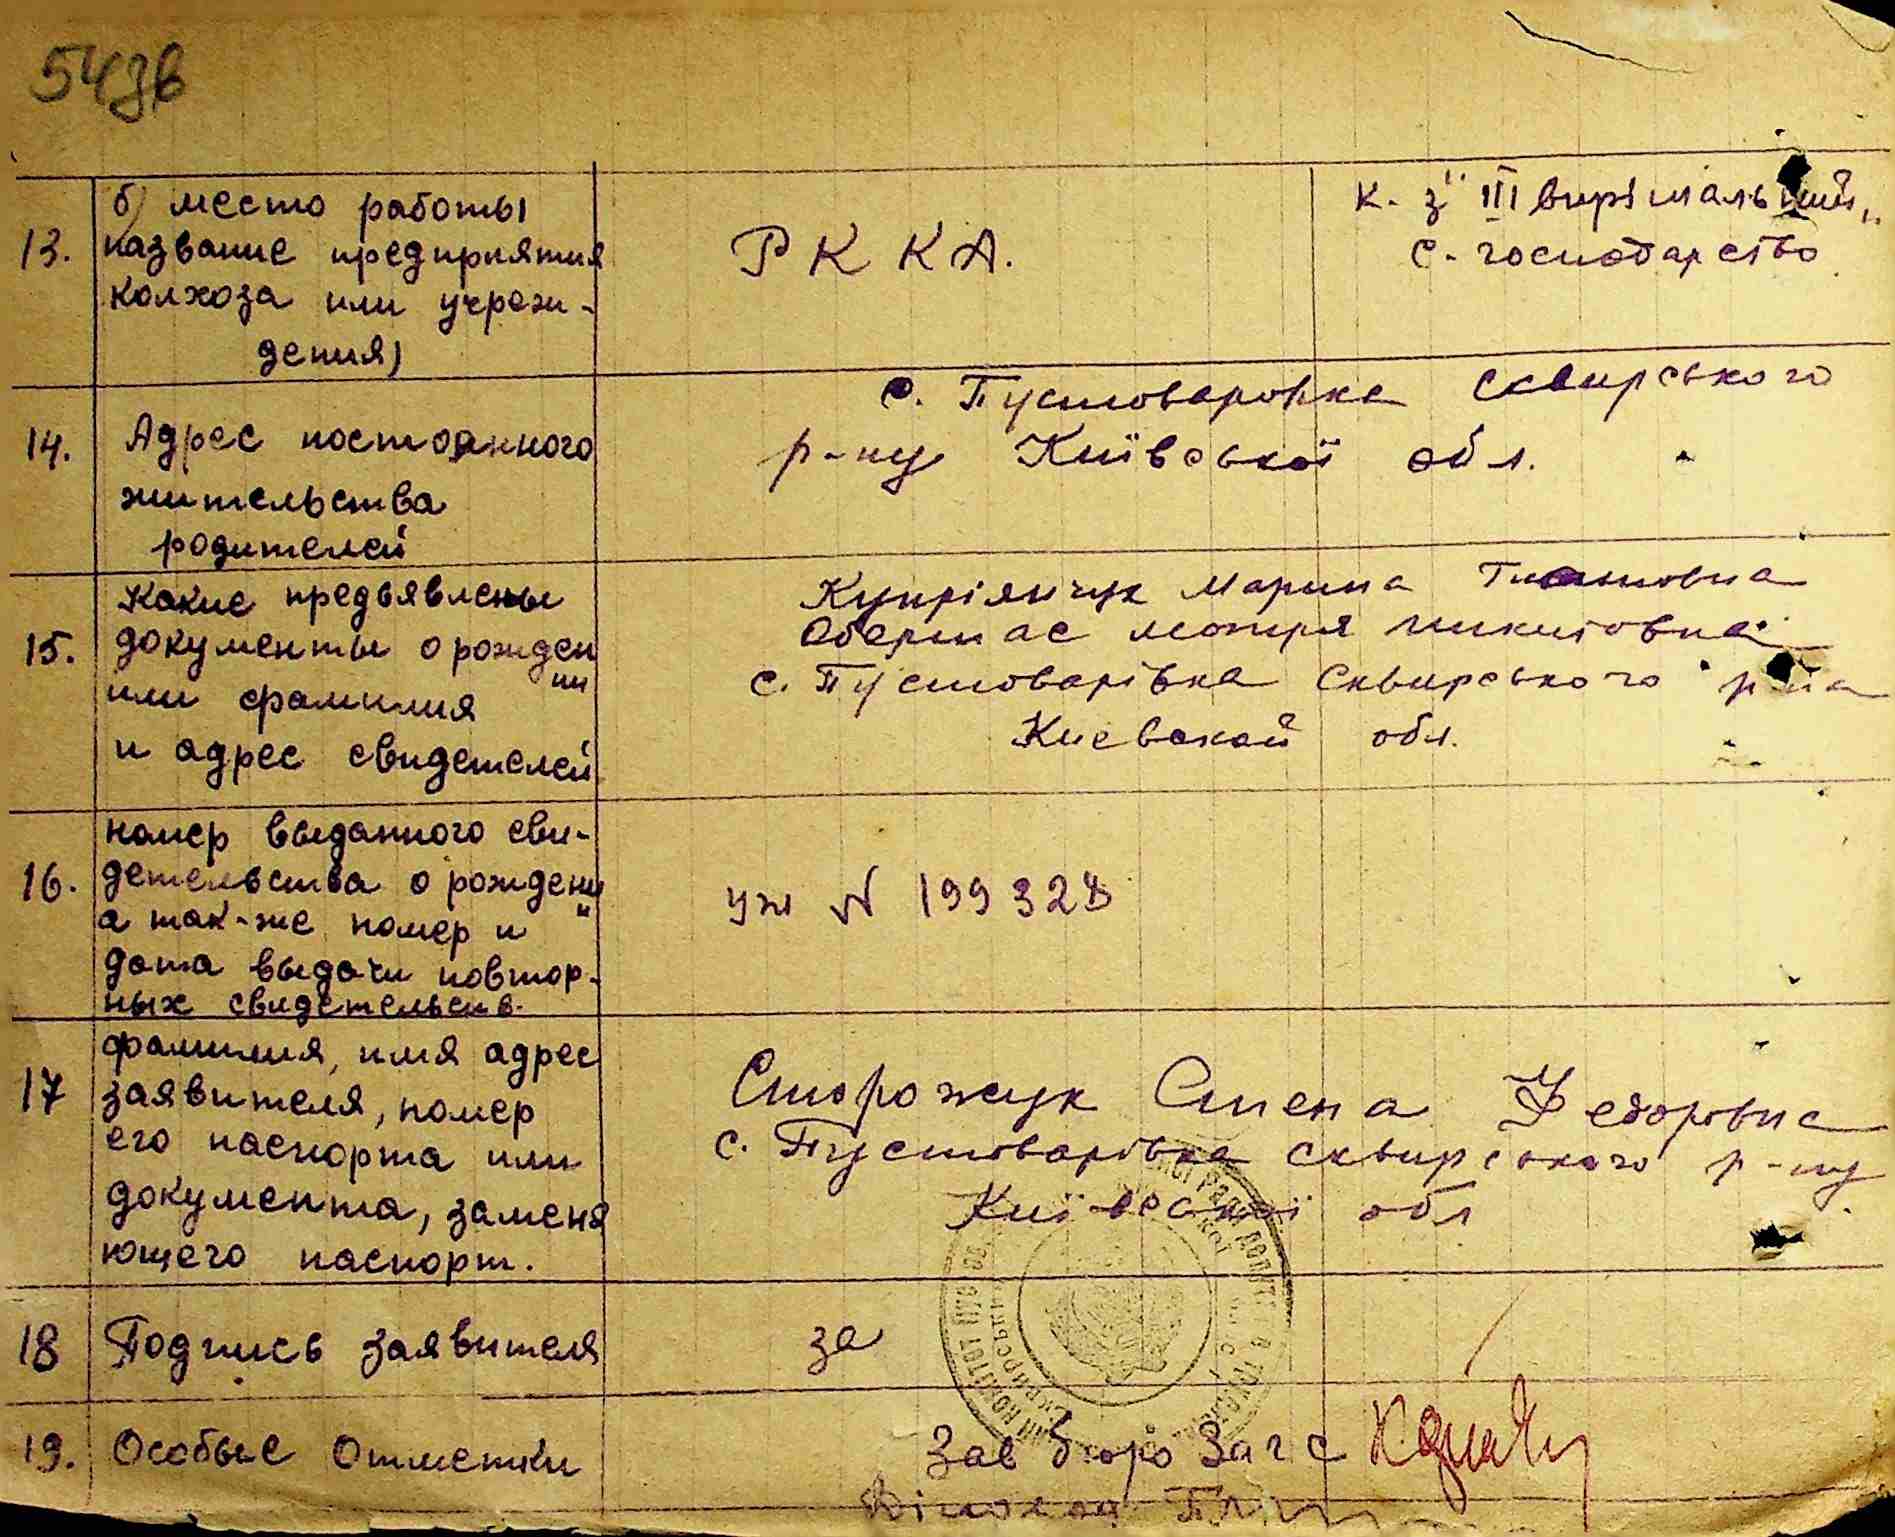 54зв
б) место работы
13. название предприятия
колхоза или учреж-
дения)
Р К К А.
к. з " III вирішальний "
с. господарство
14. Адрес постоянного
жительства
родителей
с. Пустоваровка Сквирського
р-ну Київської обл.
15. Какие предъявлены
документы о рожден
ии
или фамилия
и адрес свидетелей
Купріянчук Марина
Мотря Никитовна
с. Пустоварівка Сквирського р-на
Киевской обл.
16. номер выданного сви-
детельства о рождени
и
а так-же номер и
дата выдачи повтор-
ных свидетельств.
уж N 199328
17 фамилия, имя адрес
заявителя, номер
его паспорта или
документа, заменя
ющего паспорт.
Сторожук Федоровна
с. Пустоварівка Сквирського р-ну
Київської обл
18 Подпись заявителя
за
19. Особые отметки
Зав бюро Загс